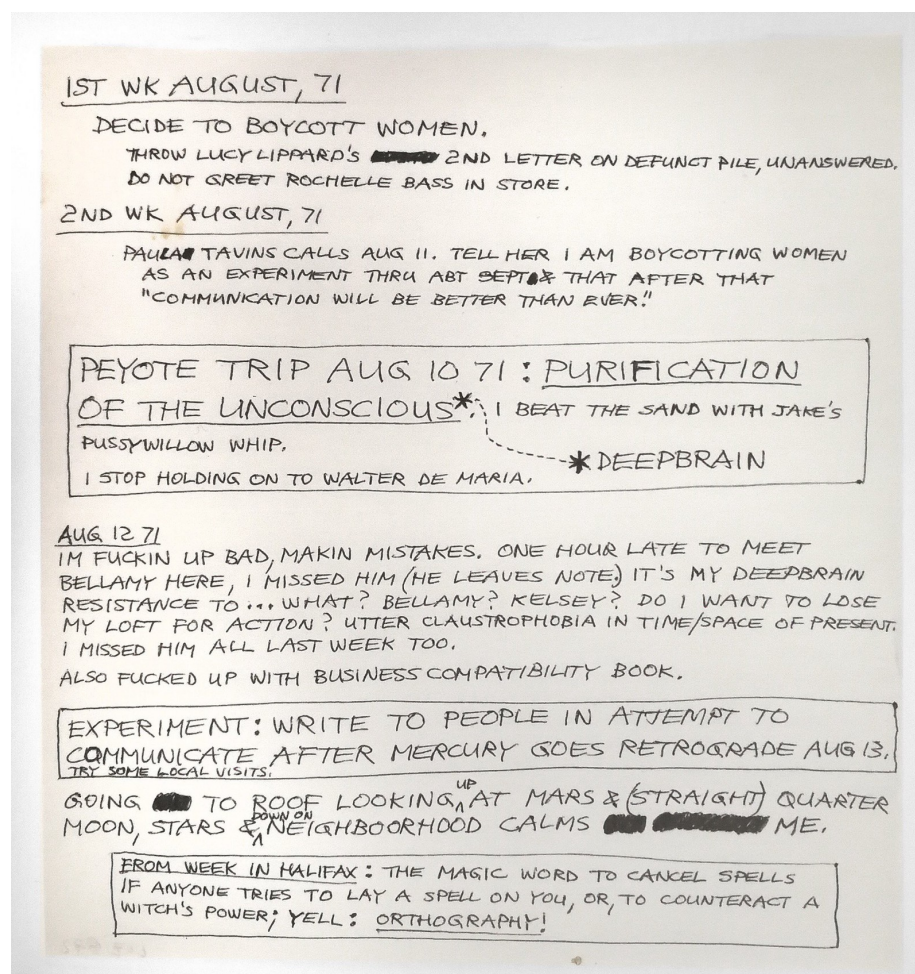 1ST WK AUGUST, 71
DECIDE TO BOYCOTT WOMEN.
THROW LUCY LIPPARD'S 2ND LETTER ON DEFUNCT PILE, UNANSWERED.
DO NOT GREET ROCHELLE BASS IN STORE.
2ND WK AUGUST, 71
PAULA TAVINS CALLS AUG 11. TELL HER I AM BOYCOTTING WOMEN
AS AN EXPERIMENT THRU ABT SEPT & THAT AFTER THAT
"COMMUNICATION WILL BE BETTER THAN EVER."
PEYOTE TRIP AUG 10 71 : PURIFICATION
OF THE UNCONSCIOUS*. I BEAT THE SAND WITH JAKE'S
PUSSYWILLOW WHIP.
* DEEPBRAIN
I STOP HOLDING ON TO WALTER DE MARIA.
AUG 12 71
IM FUCKIN UP BAD, MAKIN MISTAKES. ONE HOUR LATE TO MEET
BELLAMY HERE, I MISSED HIM (HE LEAVES NOTE) IT'S MY DEEPBRAIN
RESISTANCE TO ... WHAT? BELLAMY? KELSEY? DO I WANT TO LOSE
MY LOFT FOR ACTION? UTTER CLAUSTROPHOBIA IN TIME/SPACE OF PRESENT.
I MISSED HIM ALL LAST WEEK TOO.
ALSO FUCKED UP WITH BUSINESS COMPATIBILITY BOOK.
EXPERIMENT: WRITE TO PEOPLE IN ATTEMPT TO
COMMUNICATE AFTER MERCURY GOES RETROGRADE AUG 13.
TRY SOME LOCAL VISITS.
GOING TO ROOF LOOKING UP AT MARS & (STRAIGHT) QUARTER
MOON, STARS & DOWN ON NEIGHBOORHOOD CALMS ME.
FROM WEEK IN HALIFAX : THE MAGIC WORD TO CANCEL SPELLS
IF ANYONE TRIES TO LAY A SPELL ON YOU, OR, TO COUNTERACT A
WITCH'S POWER; YELL : ORTHOGRAPHY!